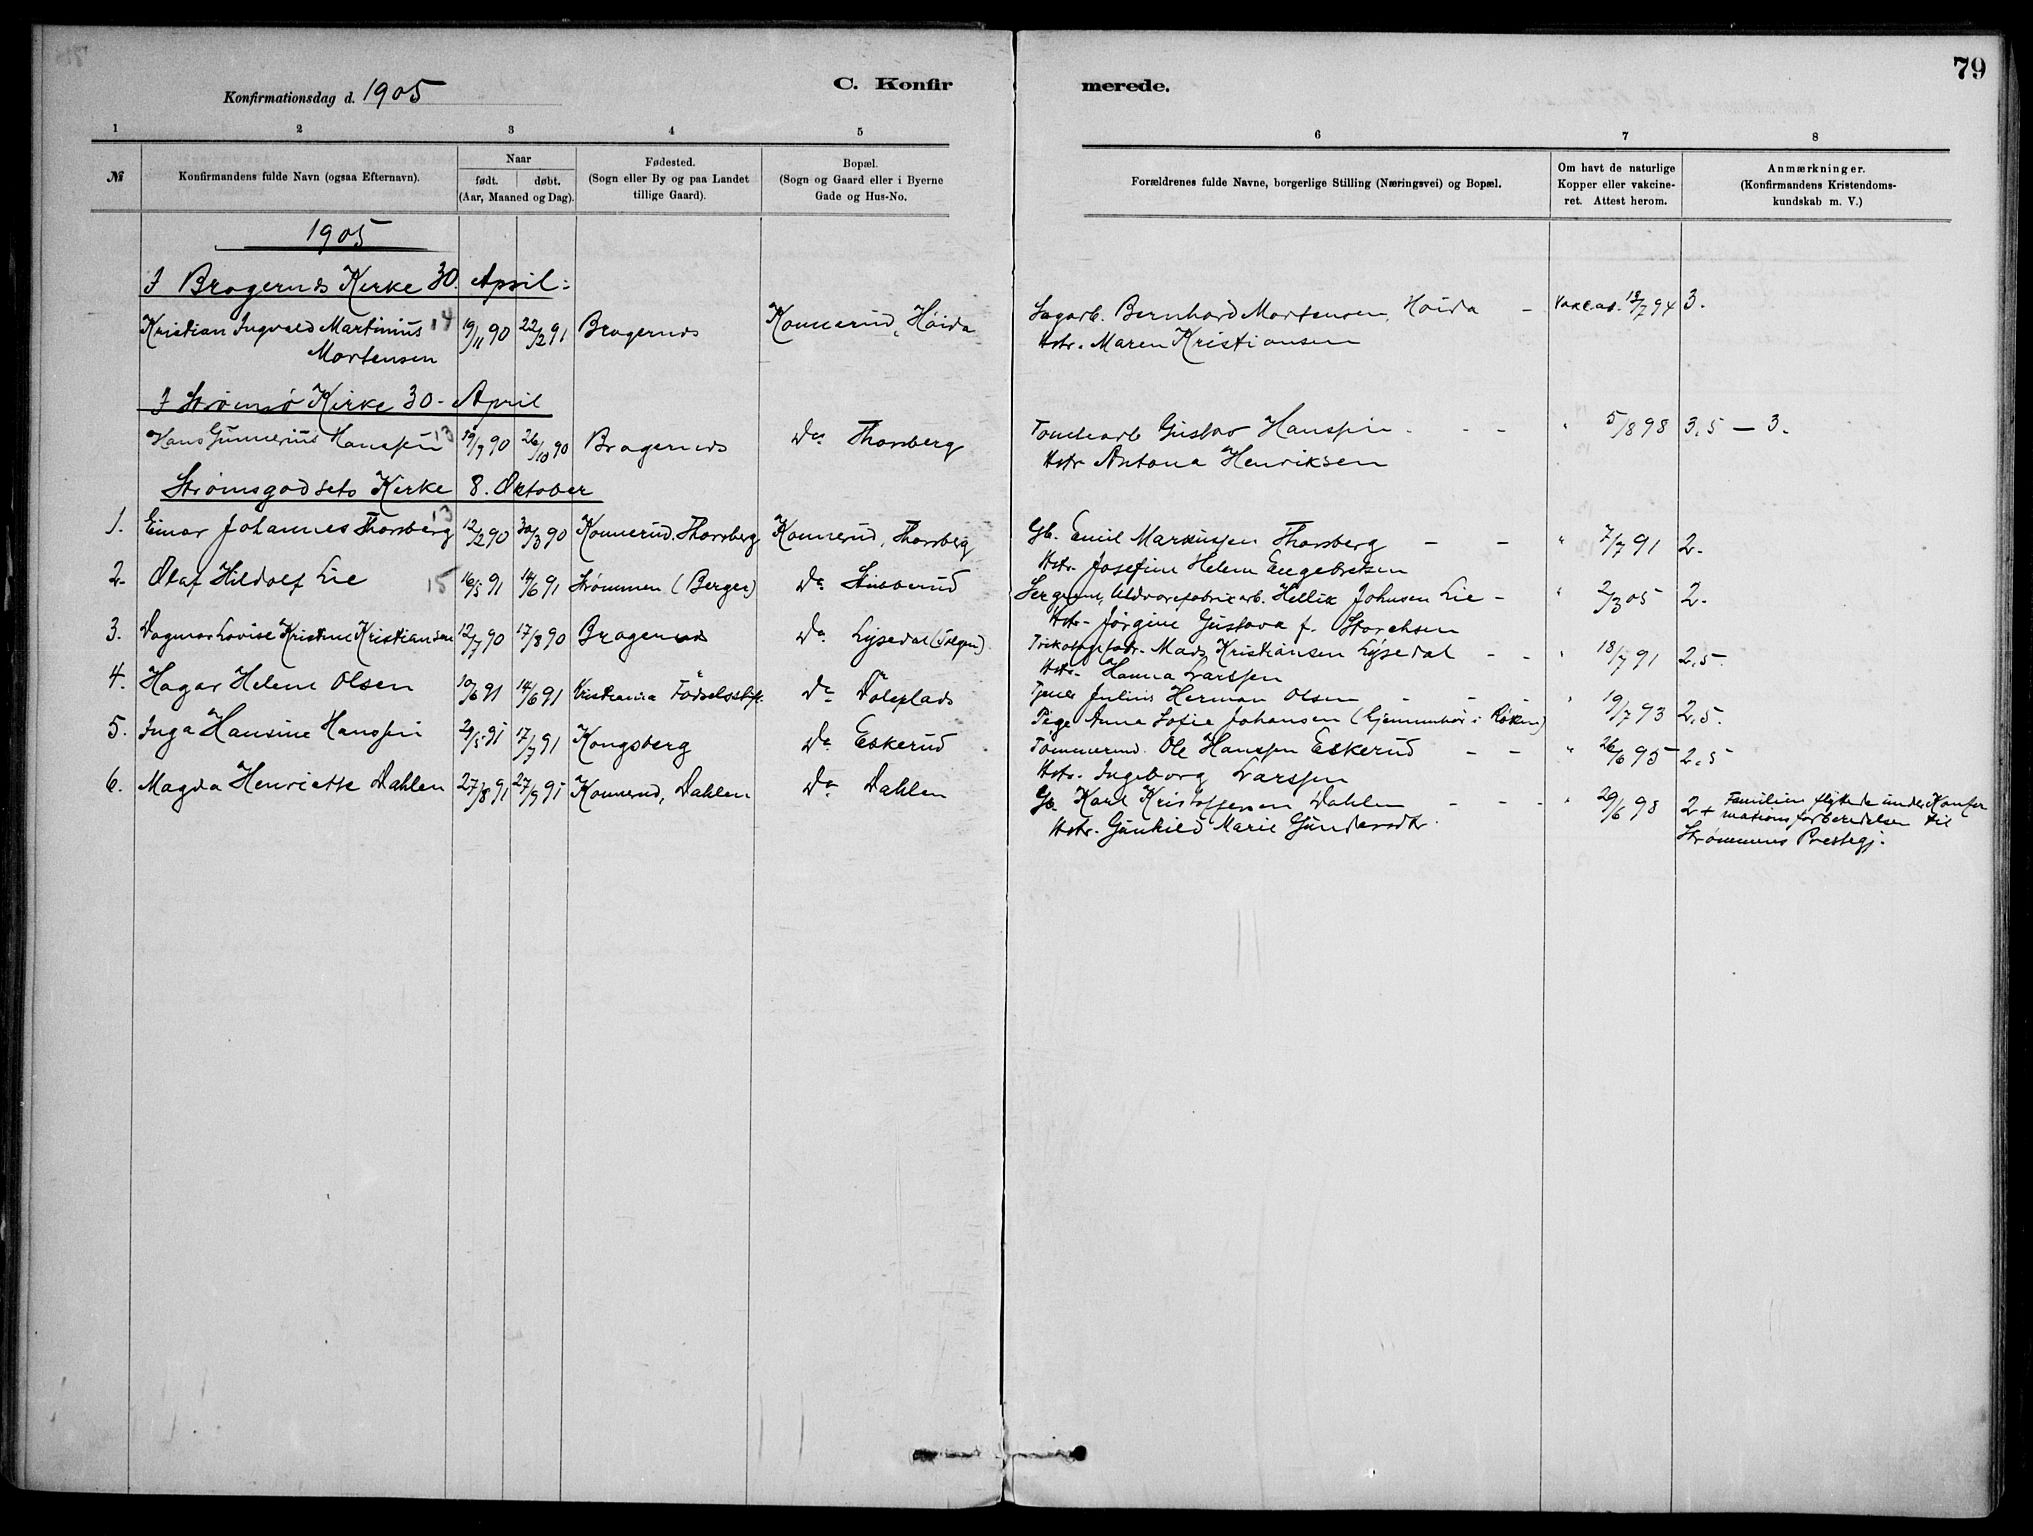 79
Konfirmationsdag d. 1905
C. Konfirmerede.
1 2 3 4 5 6 7 8
№
Konfirmandens fulde Navn (ogsaa Efternavn).
Naar
født. døbt.
(Aar, Maaned og Dag).
Fødested.
(Sogn eller By og paa Landet
tillige Gaard).
Bopæl.
(Sogn og Gaard eller i Byerne
Gade og Hus-No.
Forældrenes fulde Navne, borgerlige Stilling (Næringsvei) og Bopæl.
Om havt de naturlige
Kopper eller vakcine-
ret. Attest herom.
Anmærkninger.
(Konfirmandens Kristendoms-
kundskab m. V.)
1905
I Bragernds Kirke 30. April:
Kristian Ingvald Martinius 14 19/11 90 22/2 91 Bragernds Konnerud, Höida Sagarb. Bernhard Mortensen, Höida - 18/7 94 3.
Mortensen Hstr. Maren Kristiansen
I Strømsø Kirke 30 - April
Hans Gunnerius Hanssen 13 19/9 90 26/10 90 Bragernds Do Thorsberg Gustav Hanssen - - - " 5/8 98 3,5 — 3.
Hstr Antona Henriksen
Strømsgodsets Kirke 8. Oktober
1. Einar Johannes Thorsberg 13 12/2 90 30/3 90 Konnerud, Thorsberg Konnerud, Thorsberg Gb. Emil Markussen Thorsberg - - " 7/7 91 2.
Hstr. Josefine Helene Engebretsen
2. Olaf Hildolf Lie 15 16/5 91 14/6 91 Strømmen (Berger) Do Stubberud Sergeant, Uldvarefabrikarb. Hellik Johnsen Lie - " 2/3 05 2.
Hstr. Jörgine Gustava f. Storchsen
3. Dagmar Lovise Kristine Kristiansen 12/7 90 17/8 90 Bragernds Do Lysedal Mads Kristiansen Lysedal - - " 18/7 91 2,5.
Hstr. Hanna Larssen
4. Hagar Helene Olsen 10/6 91 14/6 91 Kristiania Födselsstif. Do Döleplads Tjener Julius Herman Olsen - - - " 19/7 93 2,5.
Pige Anna Sofie Johansen (hjemmehør. i Røken)
5. Inga Hansine Hanssen 29/5 91 17/7 91 Kongsberg Do Eskerud Tømmermd. Ole Hanssen Eskerud - - " 26/6 95 2,5
Hstr. Ingeborg Larssen
6. Magda Henriette Dahlen 27/8 91 27/9 91 Konnerud, Dahlen Do Dahlen Gb. Karl Kristoffersen Dahlen - - - " 29/6 98 2 + Familien flyttede under Konfir
Hstr. Gunhild Marie Gundersdtr. mationsforberedelsen til
Strømmens Prestegj.